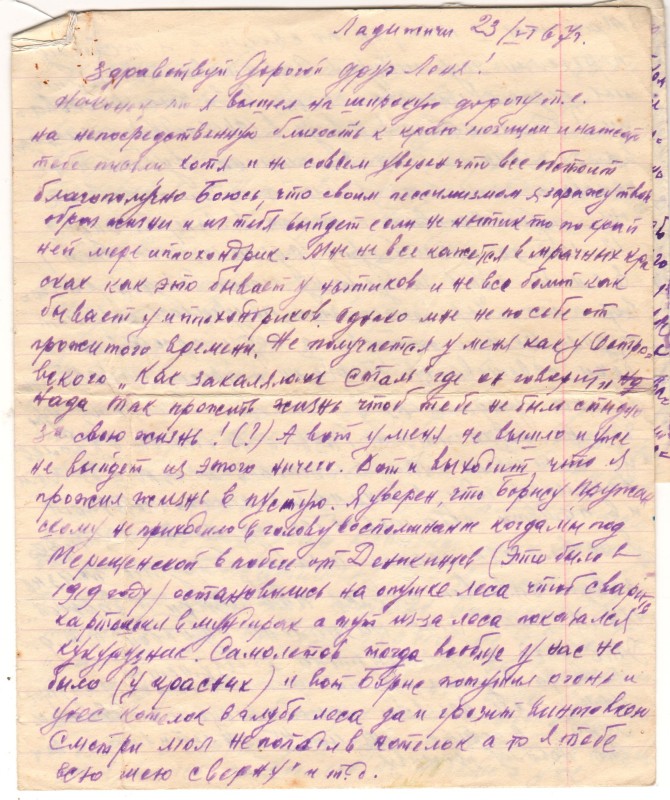 Ладижичи 23/VI 67г.
Здравствуй Дорогой друг Леня!
я вышел на широкую дорогу т.е.
на непосредственную близость к краю и
тебе письмо хотя и не совсем уверен что все обстоит
благополучно Боюсь, что своим пессимизмом я заражу твой
образ жизни и из тебя выйдет если не нытик то по край
ней мере иппохондрик. Мне не все кажется в мрачных кра
сках как это бывает у нытиков и не все болит как
бывает у иппохондриков. Однако мне не по себе от
прожитого времени. Не получается у меня как у Остро
вского „Как закалялась сталь" где он говорит „
нада так прожить жизнь чтоб тебе не было стыдно
за свою жизнь! (?) А вот у меня не вышло и уже
не выйдет из этого ничего. Вот и выходит, что я
прожил жизнь в пустую. Я уверен, что Борису
скому не приходило в голову воспоминание когда мы под
Терещенской в побеге от Деникинцев (Это было в
1919 году) остановились на опушке леса чтоб сварить
картошки в мундирах а тут из-за леса показался
кукурузник. Самолетов тогда вообще у нас не
было (у красных) и вот Борис потушил огонь и
унес котелок в глубь леса да и грозит винтовкой
Смотри мол не попади в котелок а то я тебе
всю шею сверну" и т.д.